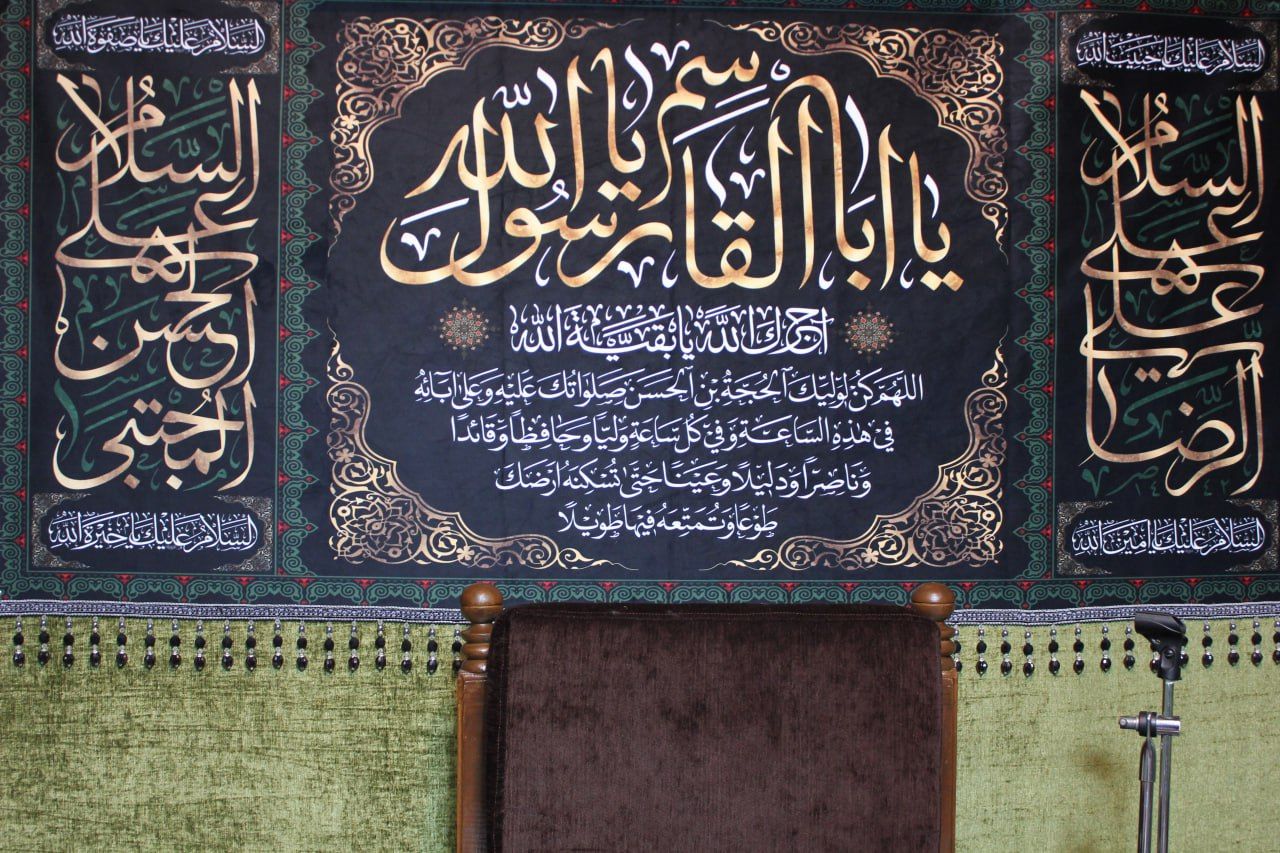 السلام عليك يا حبيب الله
السلام
على
علي
الرضا
السلام عليك يا امين الله
يا ابا القاسم يا رسول الله
اجرك الله يا بقية الله
اللهم كن لوليك الحجة بن الحسن صلواتك عليه وعلى آبائه
في هذه الساعة وفي كل ساعة وليا وحافظا وقائدا
وناصرا ودليلا وعينا حتى تسكنه ارضك
طوعا وتمتعه فيها طويلا
السلام عليك يا صفوة الله
السلام
على
الحسن
المجتبى
السلام عليك يا خيرة الله